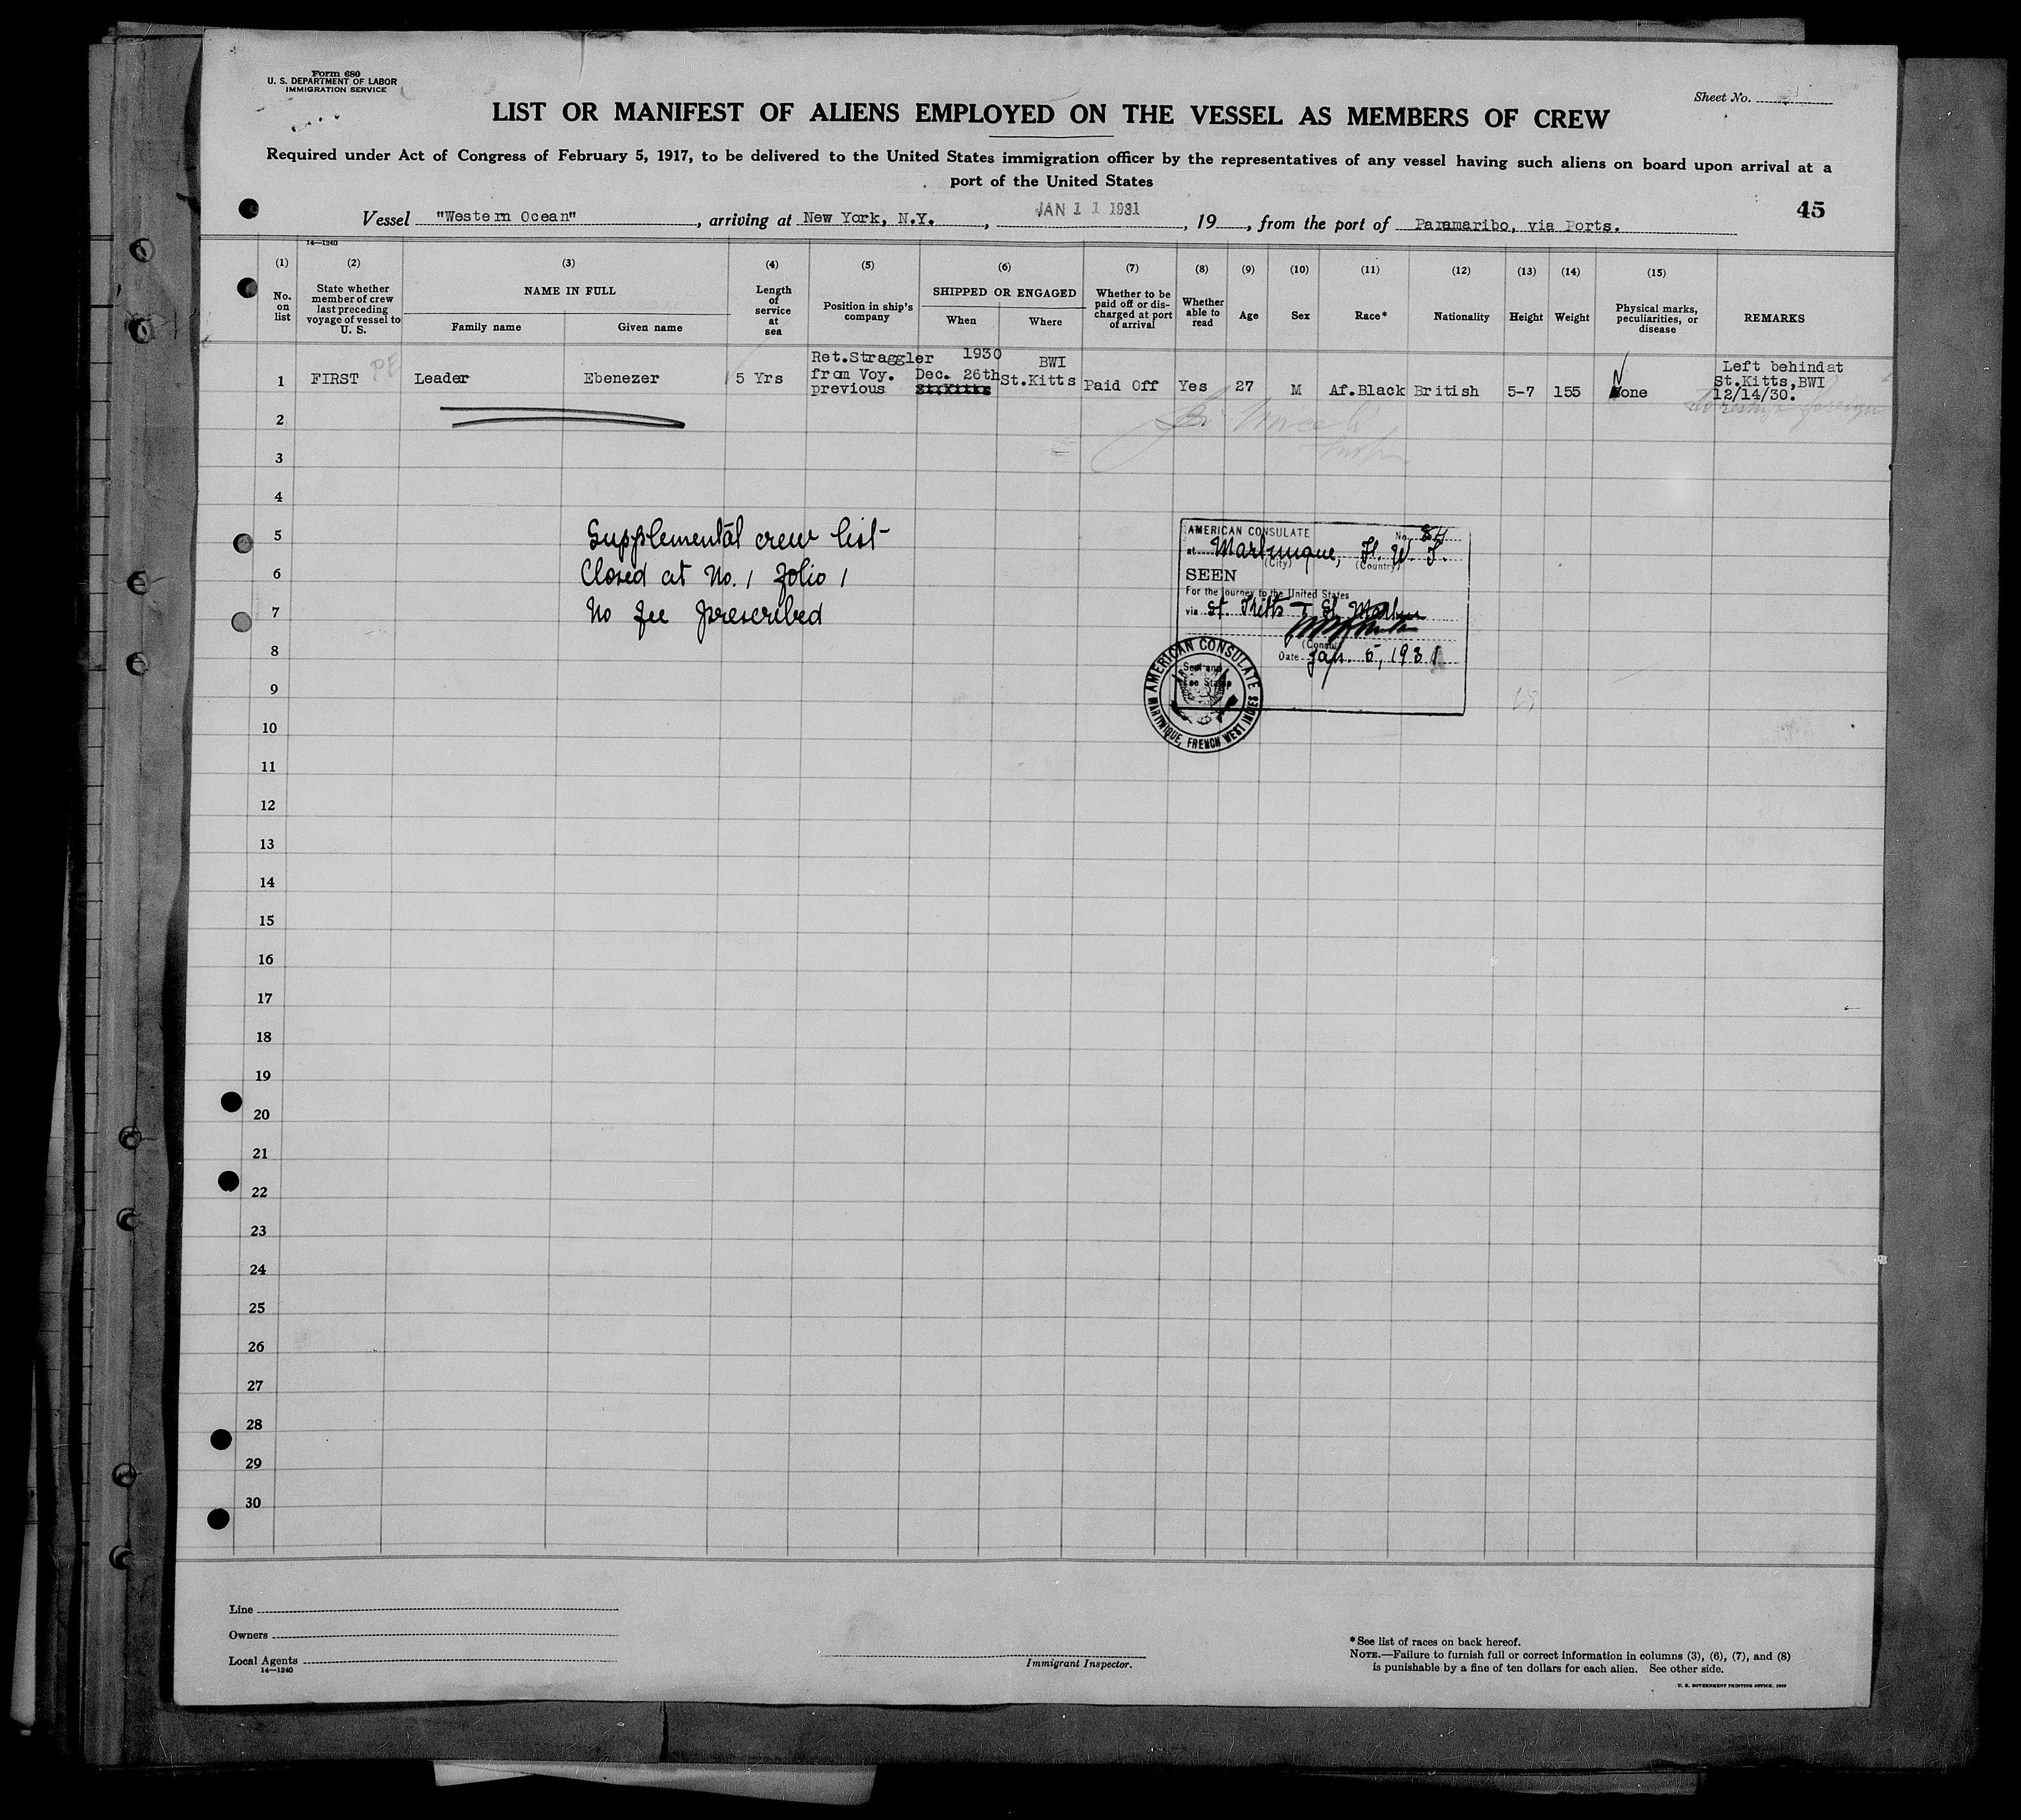 Form 680
U. S. DEPARTMENT OF LABOR
IMMIGRATION SERVICE
Sheet No.
LIST OR MANIFEST OF ALIENS EMPLOYED ON THE VESSEL AS MEMBERS OF CREW
Required under Act of Congress of February 5, 1917, to be delivered to the United States immigration officer by the representatives of any vessel having such aliens on board upon arrival at a
port of the United States
45
Vessel "Western Ocean", arriving at New York, N.Y., JAN 11 1931, 19, from the port of Paramaribo, via Ports.
14—1240
(1) (2) (3) (4) (5) (6) (7) (8) (9) (10) (11) (12) (13) (14) (15)
No. on list
State whether member of crew last preceding voyage of vessel to U. S.
NAME IN FULL
Family name
Given name
Length of service at sea
Position in ship's company
SHIPPED OR ENGAGED
When
Where
Whether to be paid off or discharged at port of arrival
Whether able to read
Age
Sex
Race*
Nationality
Height
Weight
Physical marks, peculiarities, or disease
REMARKS
1 FIRST Leader Ebenezer 5 Yrs
Ret.Straggler
from Voy.
previous
1930
Dec. 26th
St.Kitts
BWI
St.Kitts
Paid Off Yes 27 M Af.Black British 5-7 155 None
Left behind at
St.Kitts,BWI
12/14/30.
2
3
4
5
6
7
8
9
10
11
12
13
14
15
16
17
18
19
20
21
22
23
24
25
26
27
28
29
30
Supplemental crew list
Closed at No. 1 folio 1
No fee prescribed
AMERICAN CONSULATE
No. 84
at Martinique, F. W. I.
(City) (Country)
SEEN
For the journey to the United States
via St. Kitts
(Consul)
Date Jan. 5, 1931
Seal and
Fee Stamp
AMERICAN CONSULATE
MARTINIQUE, FRENCH WEST INDIES
Line
Owners
Local Agents
14—1240
Immigrant Inspector.
*See list of races on back hereof.
NOTE.—Failure to furnish full or correct information in columns (3), (6), (7), and (8)
is punishable by a fine of ten dollars for each alien. See other side.
U. S. GOVERNMENT PRINTING OFFICE.